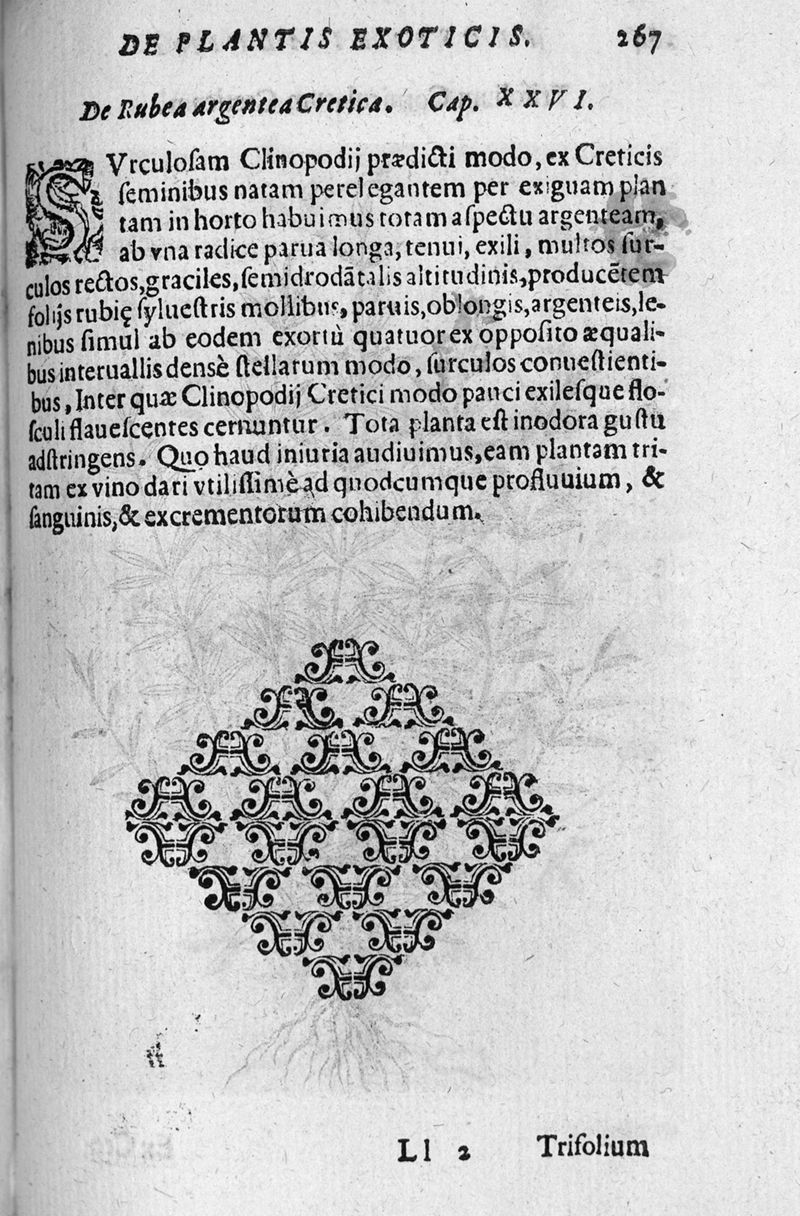 DE PLANTIS EXOTICIS. 267
De Rubea argentea Cretica. Cap. XXVI.
SVrculoſam Clinopodij prædicti modo, ex Creticis
ſeminibus natam perelegantem per exiguam plan
tam in horto habuimus totam aſpectu argenteam,
ab vna radice parua longa, tenui, exili, multos ſur-
culos rectos, graciles, ſemidrodātalis altitudinis, producētem
folijs rubię ſylueſtris mollibus, paruis, oblongis, argenteis, le-
nibus ſimul ab eodem exortù quatuor ex oppoſito æquali-
bus interuallis densè ſtellarum modo, ſurculos conueſtienti-
bus, Inter quæ Clinopodij Cretici modo pauci exileſque flo-
ſculi flaueſcentes cernuntur. Tota planta eſt inodora guſtu
adſtringens. Quo haud iniuria audiuimus, eam plantam tri-
tam ex vino dari vtiliſſimè ad quodcumque profluuium, &
ſanguinis, & excrementorum cohibendum.
Ll 2 Trifolium